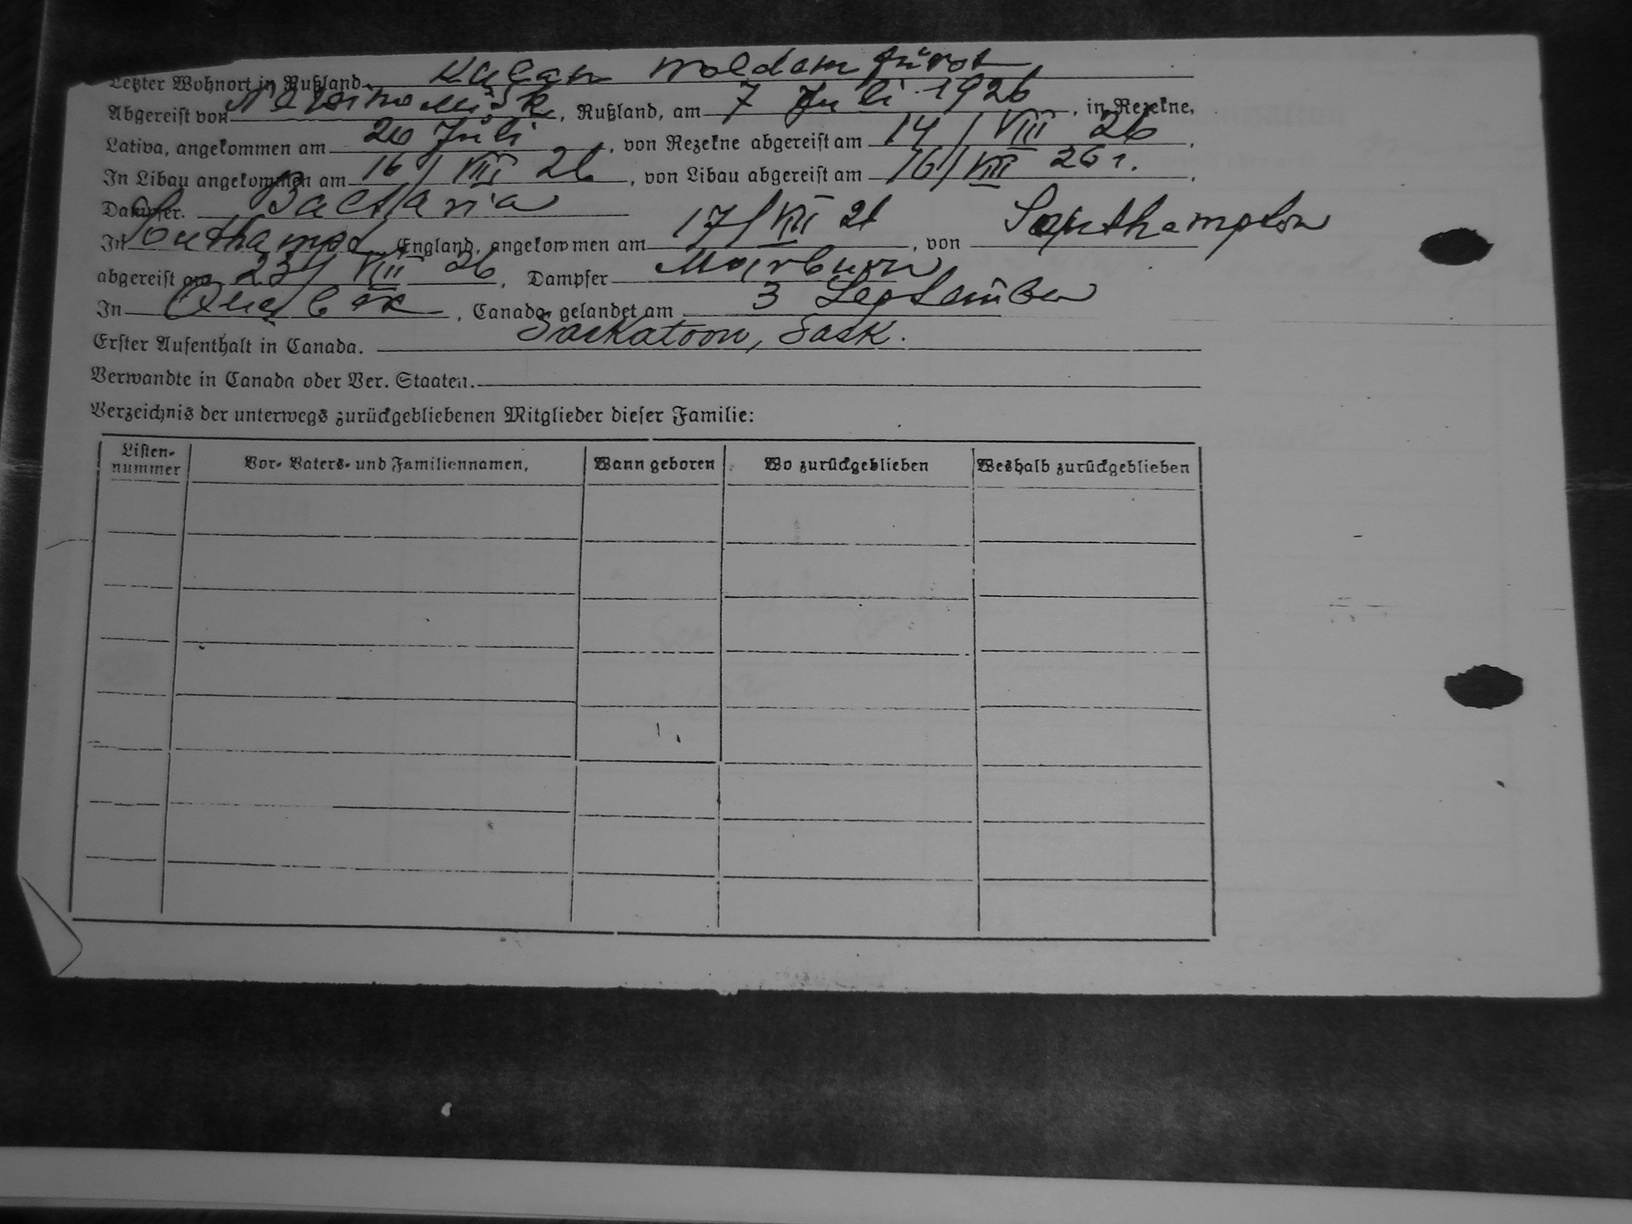 Letzter Wohnort in Rußland Woldemfürst
Abgereist von , Rußland, am 7 Juli 1926 , in Rezekne,
Lativa, angekommen am 20 Juli , von Rezekne abgereist am 14/VIII 26 .
In Libau angekommen am 16/VIII 26 , von Libau abgereist am 16/VIII 26 .
Dampfer. Baltaria
In Southampt England, angekommen am 17/VIII 26 , von Southampton
abgereist am 23/VIII 26 , Dampfer Marburn
In Quebek , Canada gelandet am 3 September
Erster Aufenthalt in Canada. Saskatoon, Sask.
Verwandte in Canada oder Ver. Staaten.
Verzeichnis der unterwegs zurückgebliebenen Mitglieder dieser Familie:
Listen-
nummer Vor- Vaters- und Familiennamen. Wann geboren Wo zurückgeblieben Weshalb zurückgeblieben